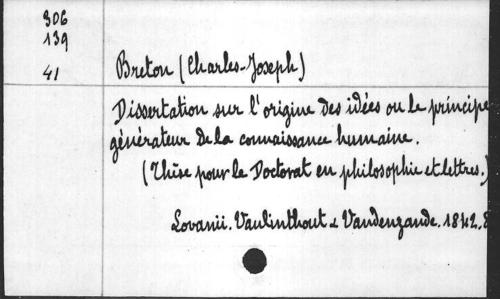 306
139
41
Breton (Charles-Joseph)
Dissertation sur l'origine des idées ou le principe
générateur de la connaissance humaine.
(Thèse pour le Doctorat en philosophie et lettres.)
Lovanii. Vanlinthout & Vandenzande. 1842. 8